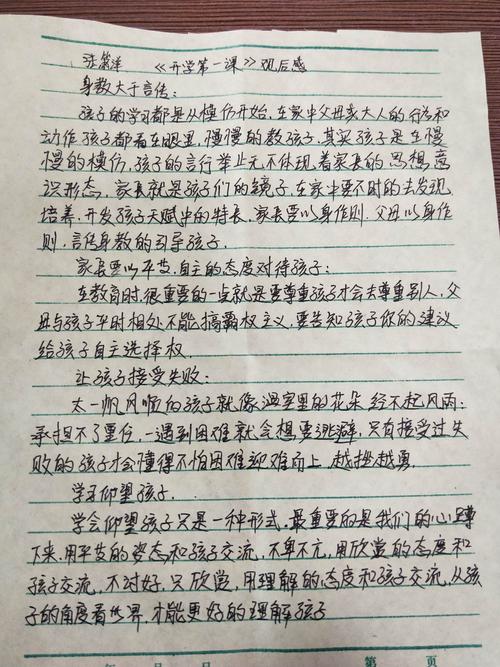 张箫洋 《开学第一课》观后感
身教大于言传：
孩子的学习都是从模仿开始，在家中父母亲大人的行为和
动作，孩子都看在眼里，慢慢的教孩子，其实孩子是在慢
慢的模仿，孩子的言行举止无不体现着家长的思想，意
识形态，家长就是孩子们的镜子，在家中要不时的去发现
培养，开发孩子天赋中的特长，家长要以身作则，父母以身作
则，言传身教的引导孩子，
家长要以平等，自主的态度对待孩子：
在教育时，很重要的一点就是要尊重孩子才会去尊重别人，父
母与孩子平时相处不能搞霸权主义，要告知孩子你的建议
给孩子自主选择权.
让孩子接受失败：
太一帆风顺的孩子就像温室里的花朵经不起风雨：
承担不了重任，一遇到困难就会想要逃避，只有接受过失
败的孩子才会懂得不怕困难迎难而上，越挫越勇.
学习仰望孩子.
学会仰望孩子只是一种形式，最重要的是我们的心蹲
下来，用平等的姿态和孩子交流，不卑不亢，用欣赏的态度和
孩子交流，不讨好，只欣赏，用理解的态度和孩子交流，从孩
子的角度看世界，才能更好的理解孩子
年 月 日 第 页